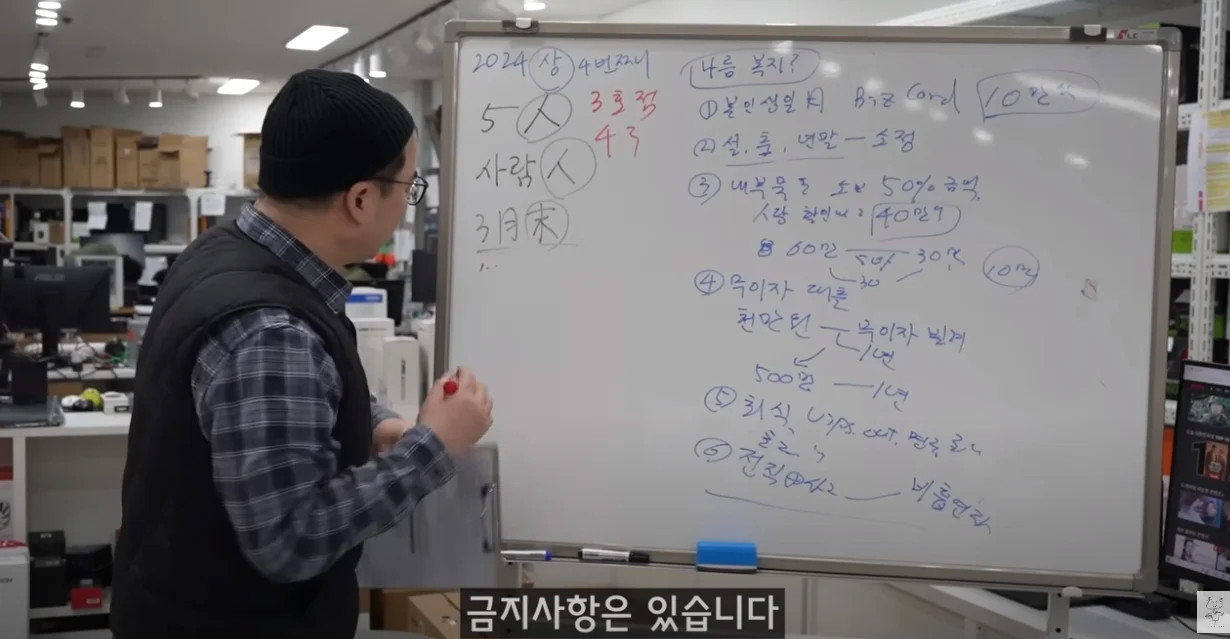 2024 상 4번째
5 人 3호점
사람 人 4
3月 末
나름 복지?
① 본인생일 Biz Card 10만원
② 설, 추, 년말 — 소정
③ 내부물품 소비 50% 금액
사장 확인하고 40만원
60만 30만 10만
30
④ 무이자 대출
천만원 — 무이자 빌려
1년
500만 — 1년
⑤ 회식, Vips, out,
⑥ 전직원 — 비흡연자
금지사항은 있습니다